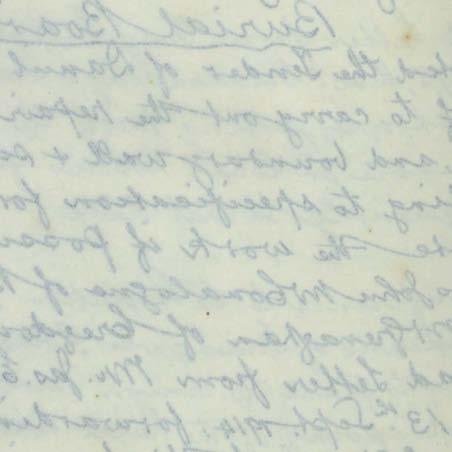 Burial Boar
ted the Tender of Daniel
to carry out the repair
and boundary wall & 
ing to specification for
the work of
John McConalogue of
of Creggdon
ad letter from Mr. Jas.
13th Sept. 1914. forwardin